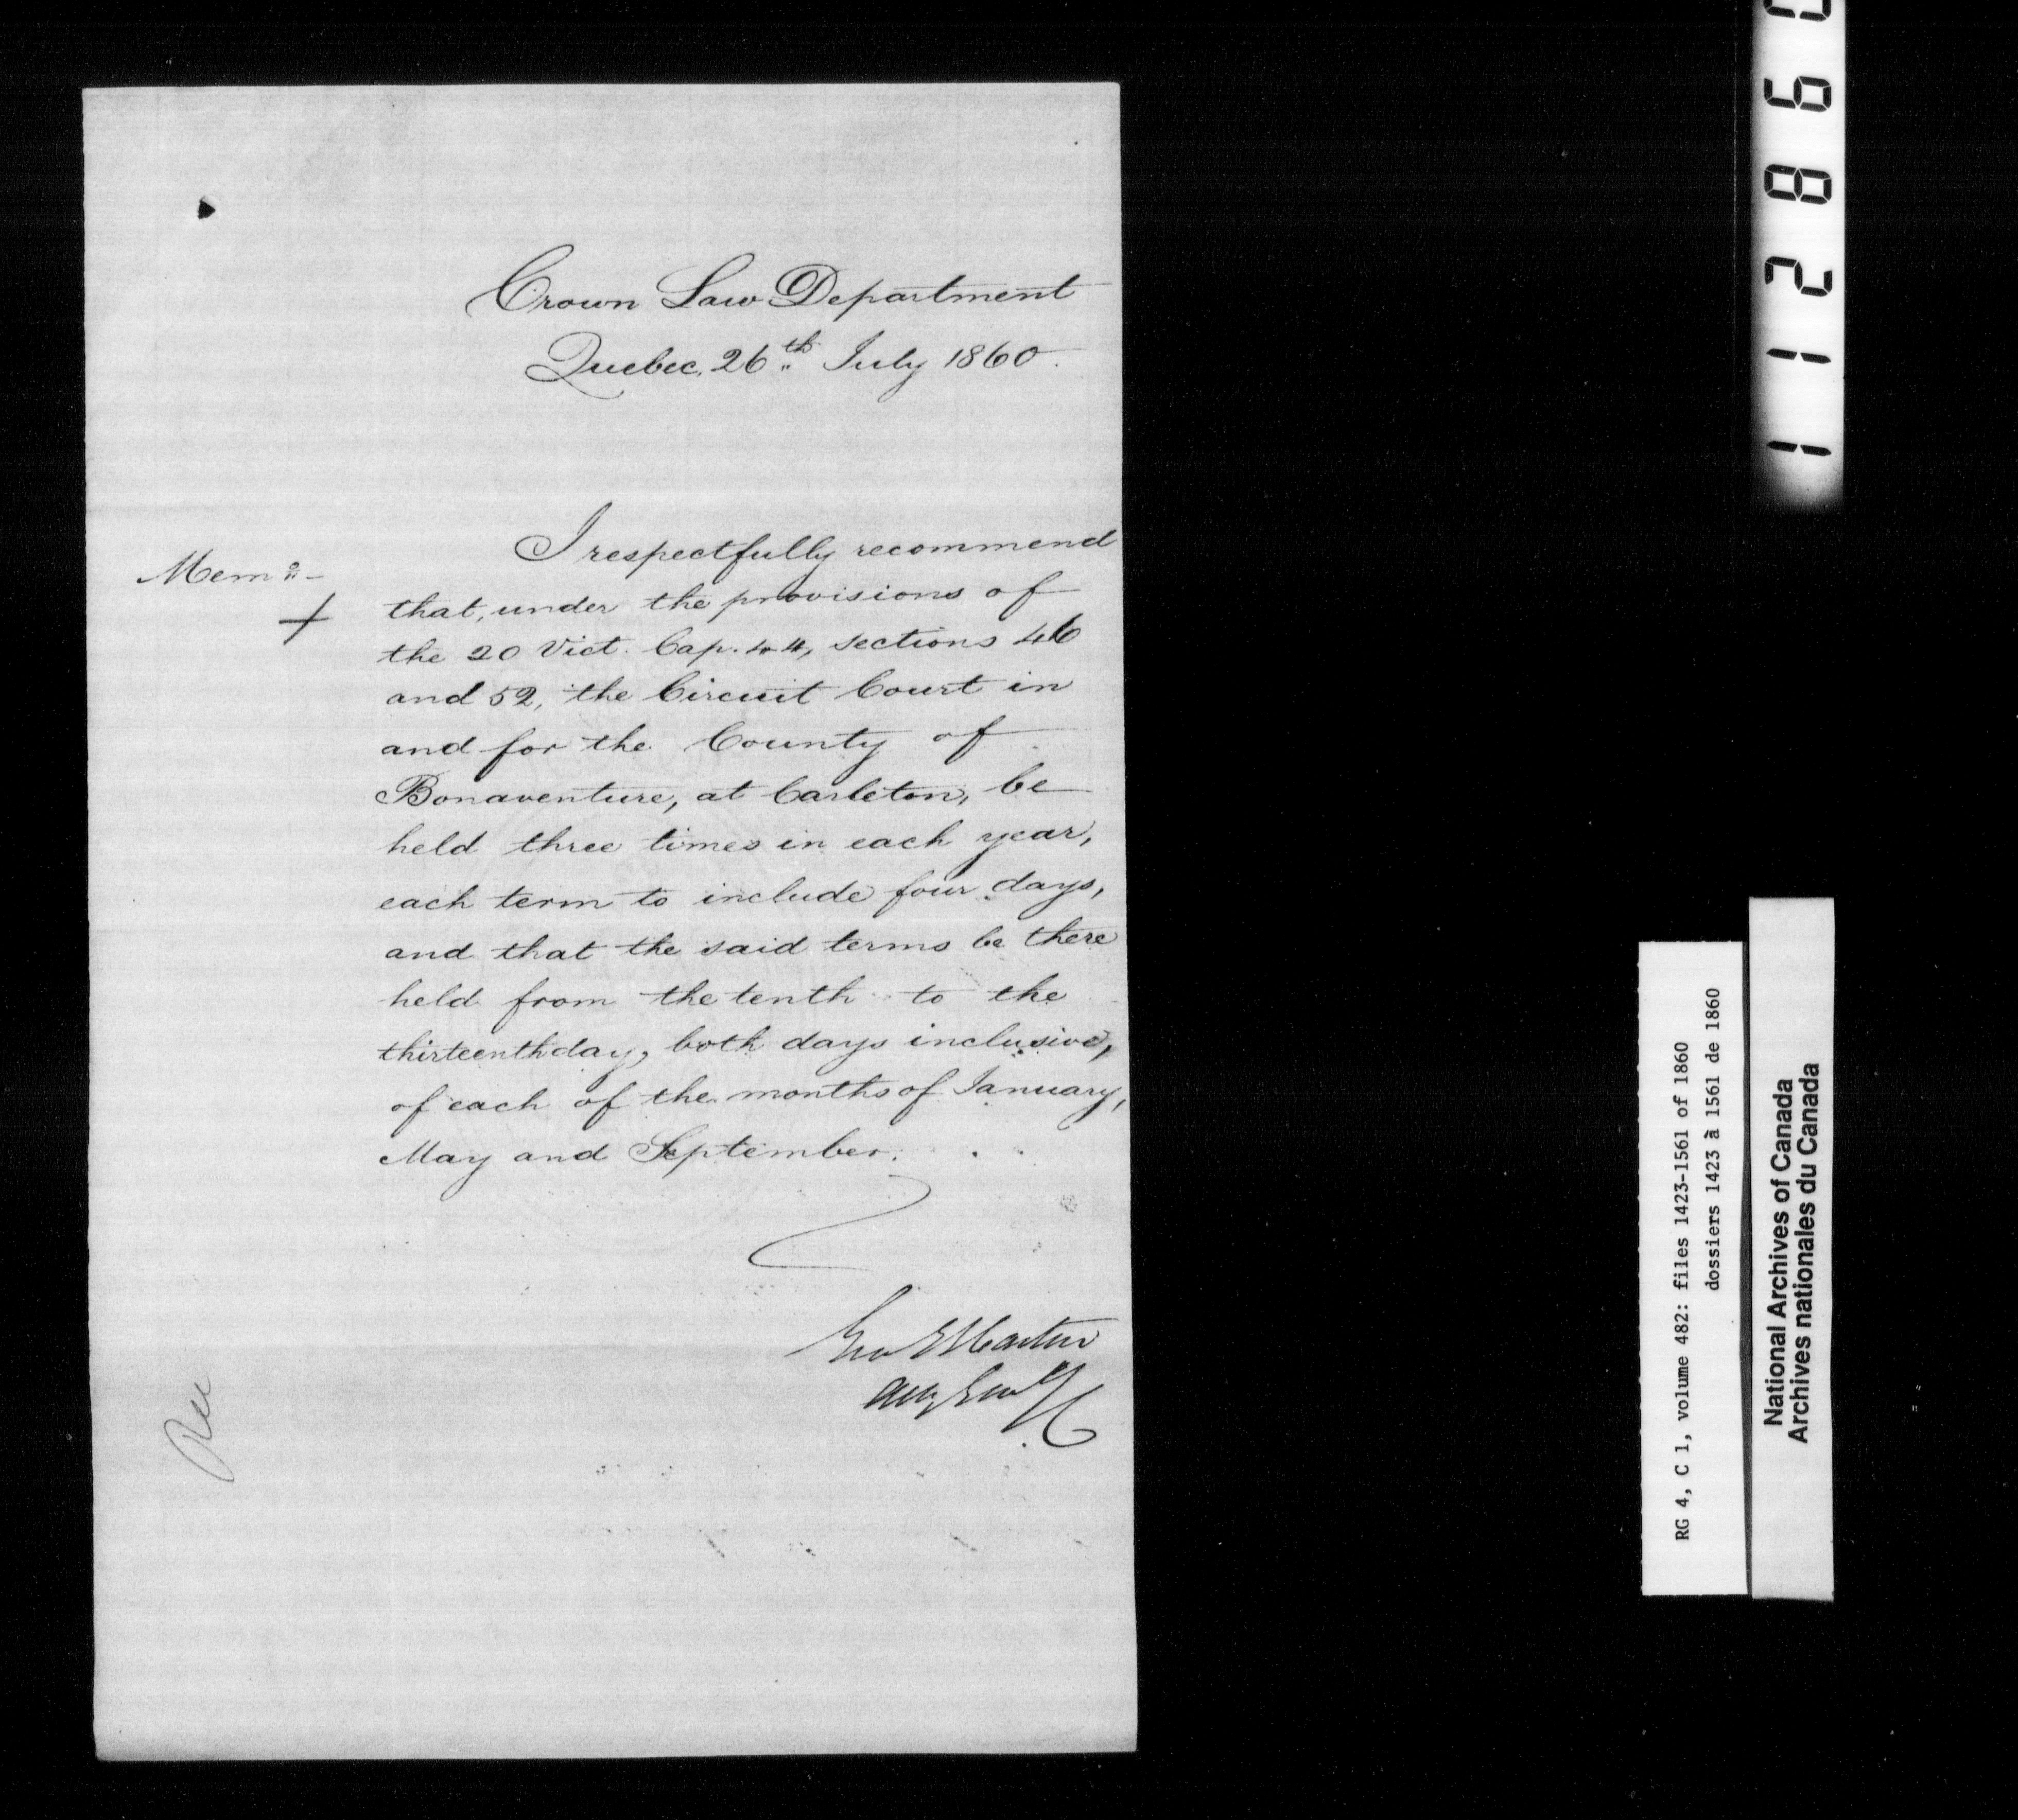 Crown Law Department
Quebec, 26th July 1860.
Memo-
I respectfully recommend
that, under the provisions of
the 20 Vict. Cap. 44, sections 46
and 52, the Circuit Court in
and for the County of
Bonaventure, at Carleton, be
held three times in each year,
each term to include four days,
and that the said terms be there
held from the tenth to the
thirteenth day, both days inclusive,
of each of the months of January,
May and September.
Geo E Cartier
Atty Genl
RG 4, C 1, volume 482: files 1423-1561 of 1860
dossiers 1423 à 1561 de 1860
National Archives of Canada
Archives nationales du Canada
11286